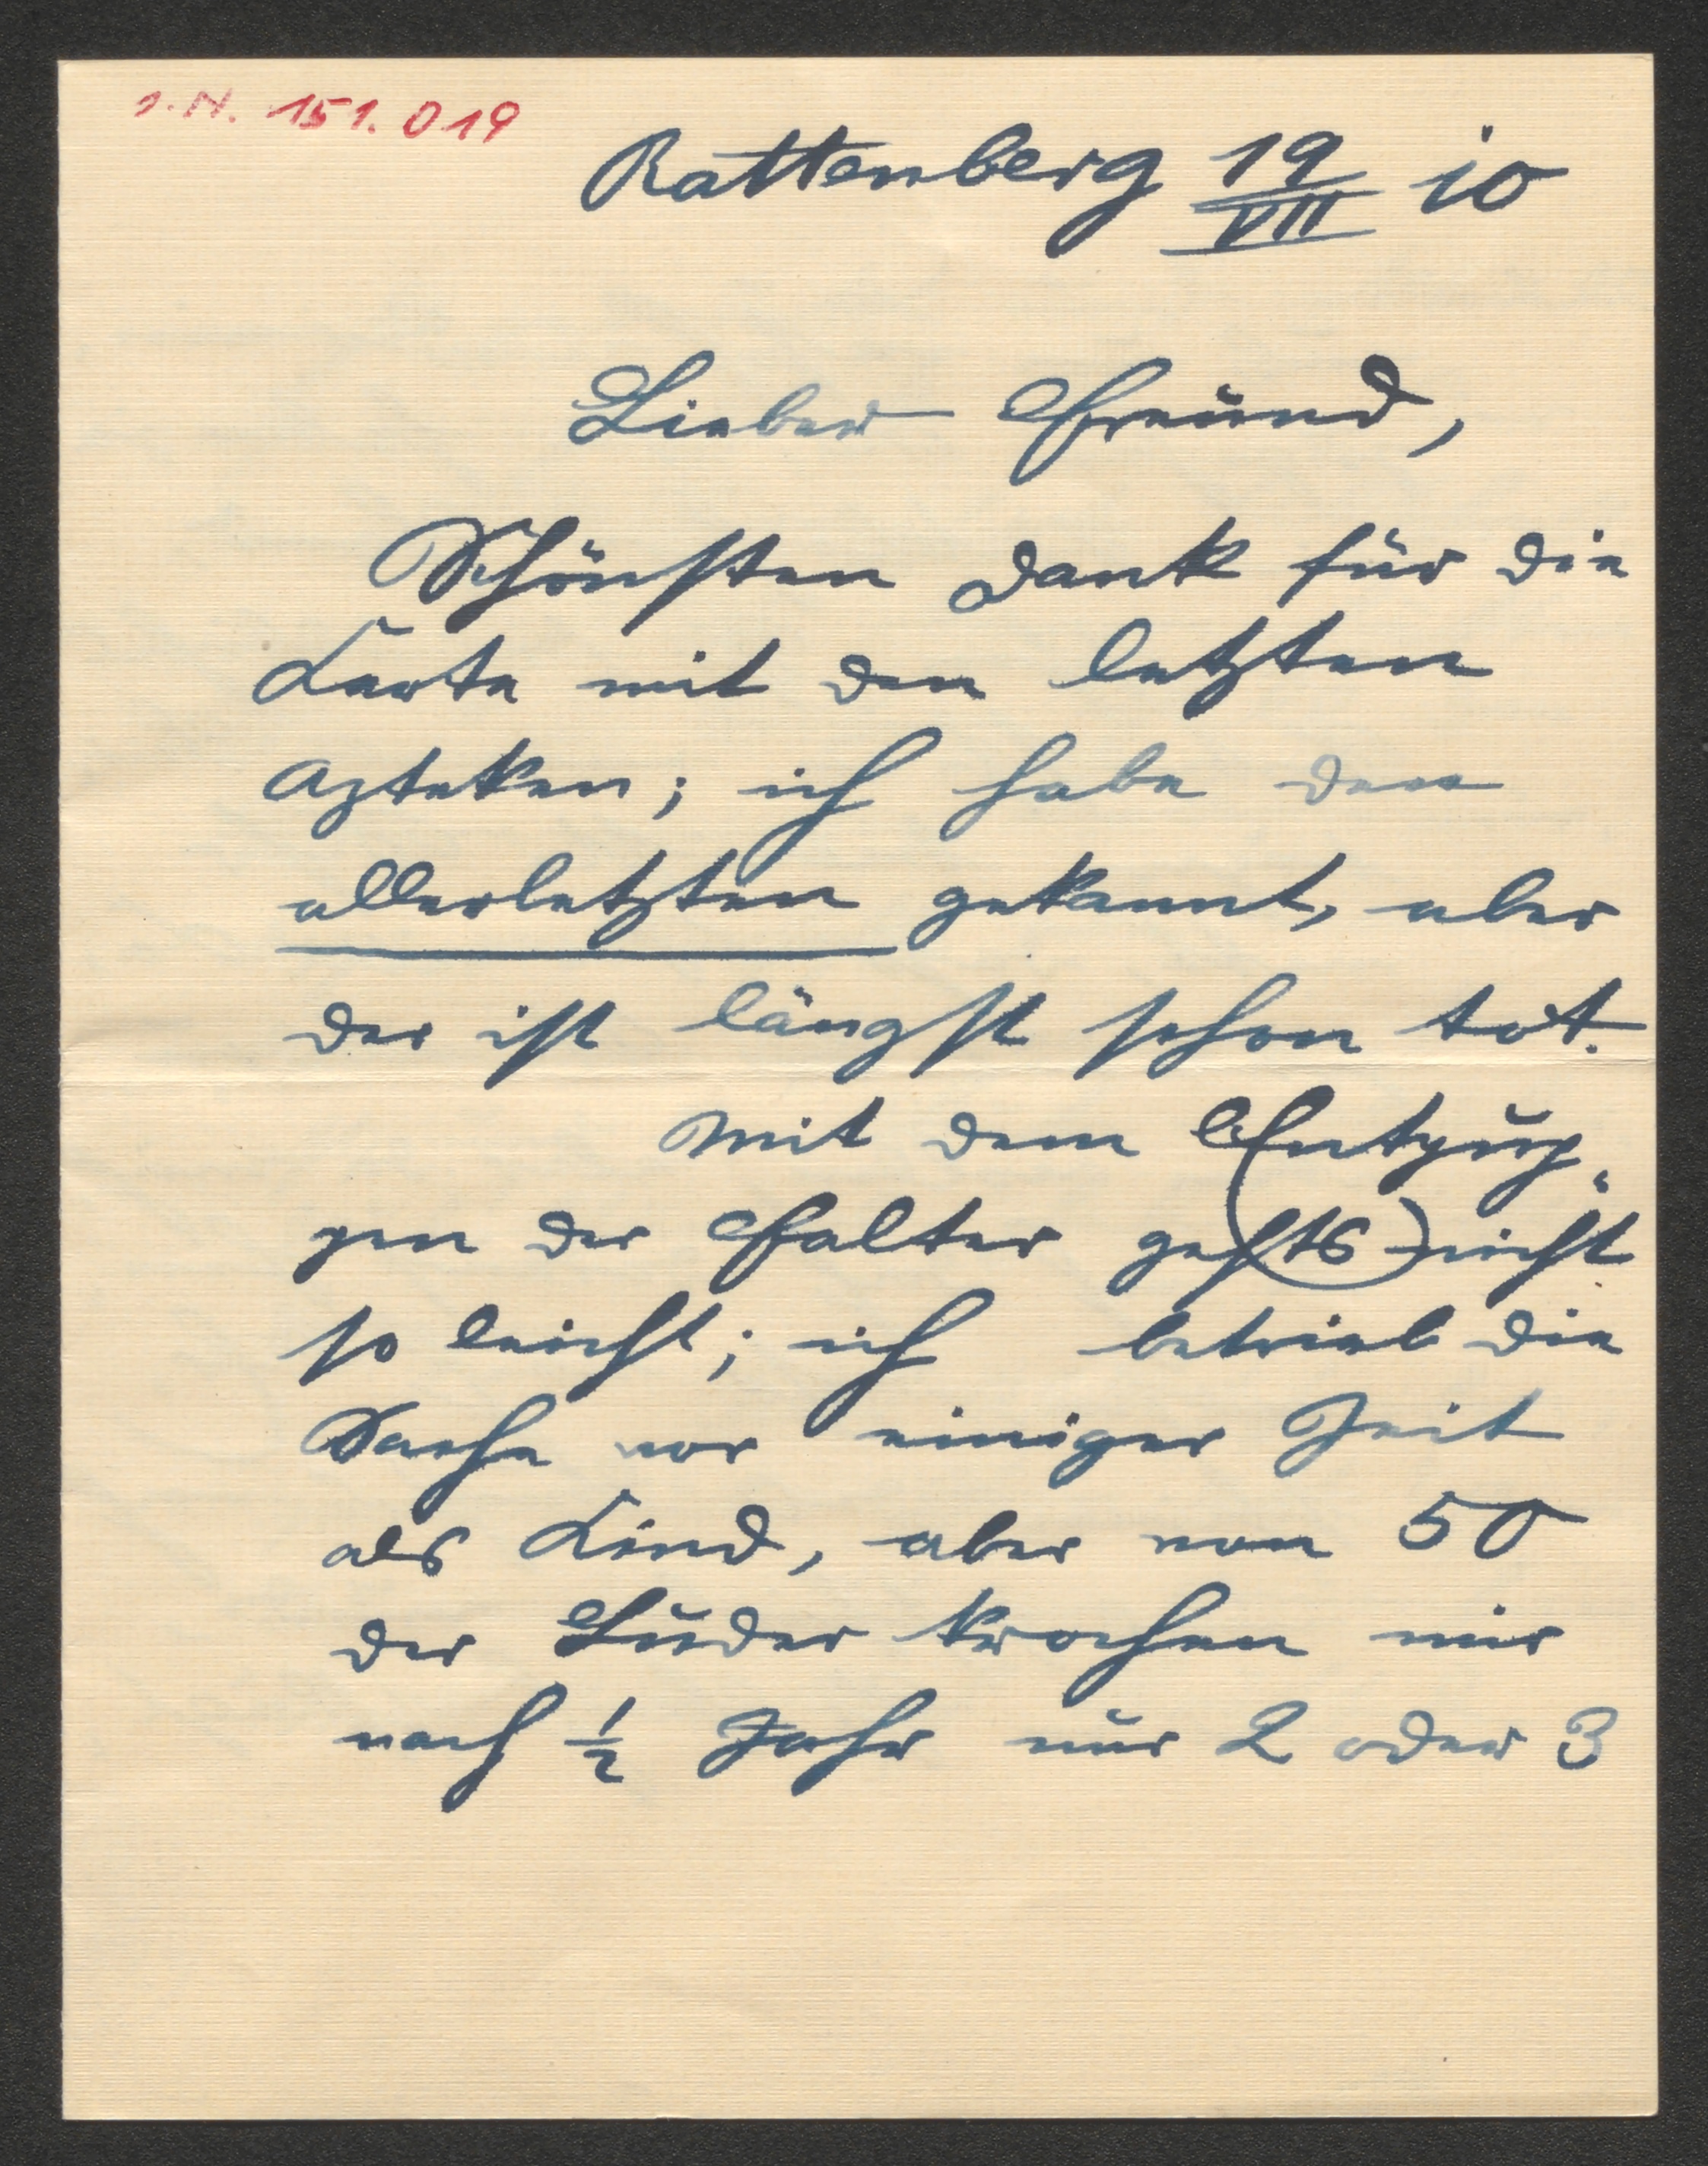 I.N. 151.019
Rattenberg 19/VII 10
Lieber Freund,
Schönsten Dank für die
Karte mit den letzten
Azteken; ich habe den
allerletzten gekannt, aber
der ist längst schon tot.
Mit dem Entpup-
pen der Falter gehts nicht
so leicht; ich betrieb die
Sache vor einiger Zeit
als Kind, aber von 50
der Luder krochen mir
nach ½ Jahr nur 2 oder 3